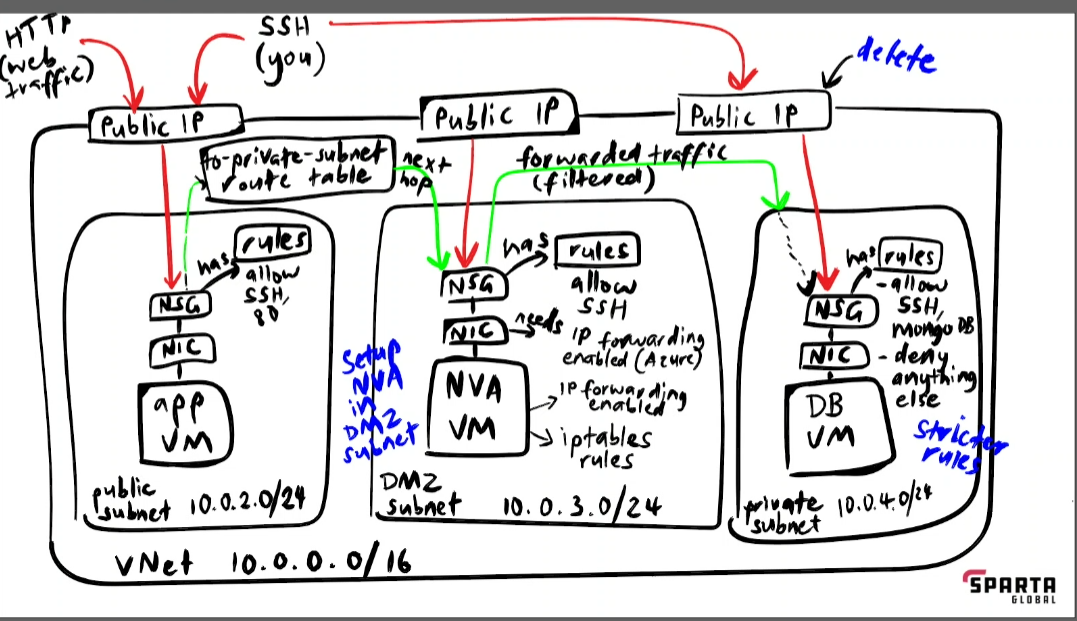 HTTP
(web
traffic)
SSH
(you)
delete
Public IP
Public IP
Public IP
to-private-subnet
route table
next
hop
forwarded traffic
(filtered)
rules
has
allow
SSH,
80
NSG
NIC
app
VM
public
subnet 10.0.2.0/24
Setup
NVA
in
DMZ
subnet
has
rules
allow
SSH
NSG
NIC
needs
IP forwarding
enabled (Azure)
NVA
VM
IP forwarding
enabled
iptables
rules
DMZ
subnet 10.0.3.0/24
has
rules
- allow
SSH,
mongoDB
- deny
anything
else
NSG
NIC
DB
VM
Stricter
rules
private
subnet 10.0.4.0/24
VNet 10.0.0.0/16
SPARTA
GLOBAL